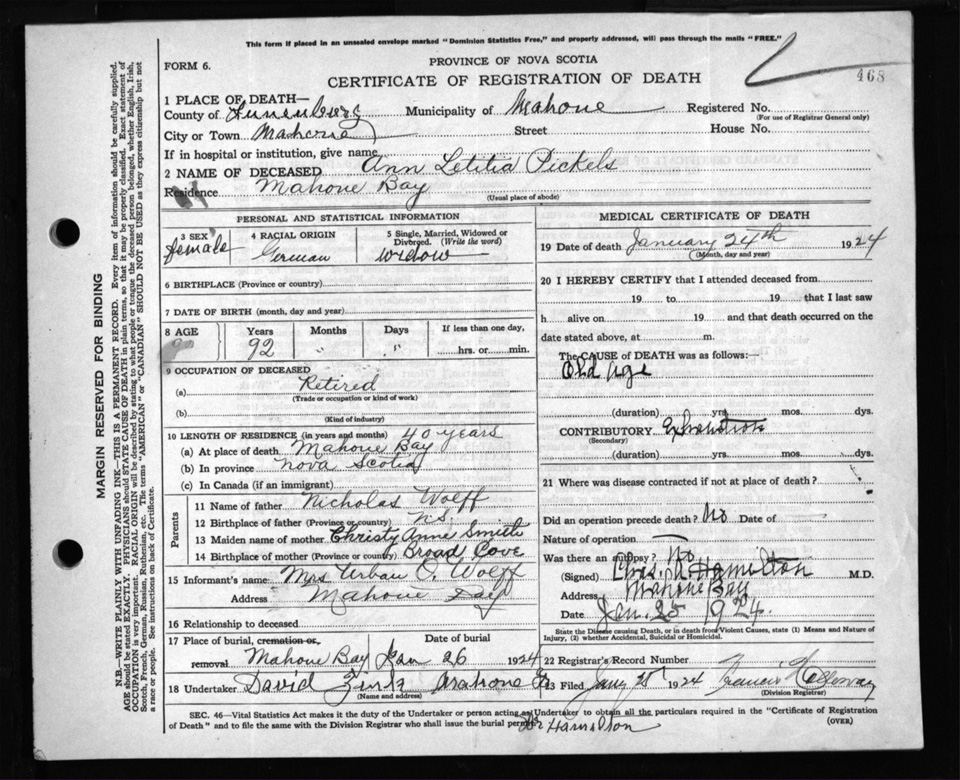 This form if placed in an unsealed envelope marked "Dominion Statistics Free," and properly addressed, will pass through the mails "FREE."
PROVINCE OF NOVA SCOTIA
FORM 6.
CERTIFICATE OF REGISTRATION OF DEATH
468
1 PLACE OF DEATH—
County of Lunenburg Municipality of Mahone Registered No.
(For use of Registrar General only)
City or Town Mahone Street House No.
If in hospital or institution, give name
2 NAME OF DECEASED Ann Letitia Pickels
Residence Mahone Bay
(Usual place of abode)
PERSONAL AND STATISTICAL INFORMATION
3 SEX female
4 RACIAL ORIGIN German
5 Single, Married, Widowed or Divorced. (Write the word) Widow
6 BIRTHPLACE (Province or country)
7 DATE OF BIRTH (month, day and year)
8 AGE Years Months Days If less than one day,
92 " " hrs. or min.
9 OCCUPATION OF DECEASED
(a) Retired
(Trade or occupation or kind of work)
(b)
(Kind of industry)
10 LENGTH OF RESIDENCE (in years and months) 40 years
(a) At place of death Mahone Bay
(b) In province Nova Scotia
(c) In Canada (if an immigrant)
Parents
11 Name of father Nicholas Wolff
12 Birthplace of father (Province or country) N S
13 Maiden name of mother Christy Anne Smith
14 Birthplace of mother (Province or country) Broad Cove
15 Informant's name Mrs Urban O. Wolff
Address Mahone Bay
16 Relationship to deceased
17 Place of burial, cremation or removal Mahone Bay Date of burial Jan 26 1924
18 Undertaker David Zink Mahone B
(Name and address)
MEDICAL CERTIFICATE OF DEATH
19 Date of death January 24th 1924
(Month, day and year)
20 I HEREBY CERTIFY that I attended deceased from
19 to 19 that I last saw
h alive on 19 and that death occurred on the
date stated above, at m.
The CAUSE OF DEATH was as follows:
Old Age
(duration) yrs. mos. dys.
CONTRIBUTORY Exhaustion
(Secondary)
(duration) yrs. mos. dys.
21 Where was disease contracted if not at place of death?
Did an operation precede death? No Date of
Nature of operation
Was there an autopsy? No
(Signed) Chas. A Hamilton M.D.
Address Mahone Bay
Date Jan. 25 1924.
State the Disease causing Death, or in death from Violent Causes, state (1) Means and Nature of Injury, (2) whether Accidental, Suicidal or Homicidal.
22 Registrar's Record Number
23 Filed Jany 28 1924 Francis
(Division Registrar)
SEC. 46—Vital Statistics Act makes it the duty of the Undertaker or person acting as Undertaker to obtain all the particulars required in the "Certificate of Registration
of Death" and to file the same with the Division Registrar who shall issue the burial permit. (OVER)
Dr Hamilton
MARGIN RESERVED FOR BINDING
N.B.—WRITE PLAINLY WITH UNFADING INK—THIS IS A PERMANENT RECORD. Every item of information should be carefully supplied.
AGE should be stated EXACTLY. PHYSICIANS should STATE CAUSE OF DEATH in plain terms, so that it may be properly classified. Exact statement of
OCCUPATION is very important. RACIAL ORIGIN will be described by stating to what people or tongue the deceased person belonged, whether English, Irish,
Scotch, French, German, Russian, Ruthenian, etc. The terms "AMERICAN" or "CANADIAN" SHOULD NOT BE USED as they express citizenship but not
a race or people. See instructions on back of Certificate.